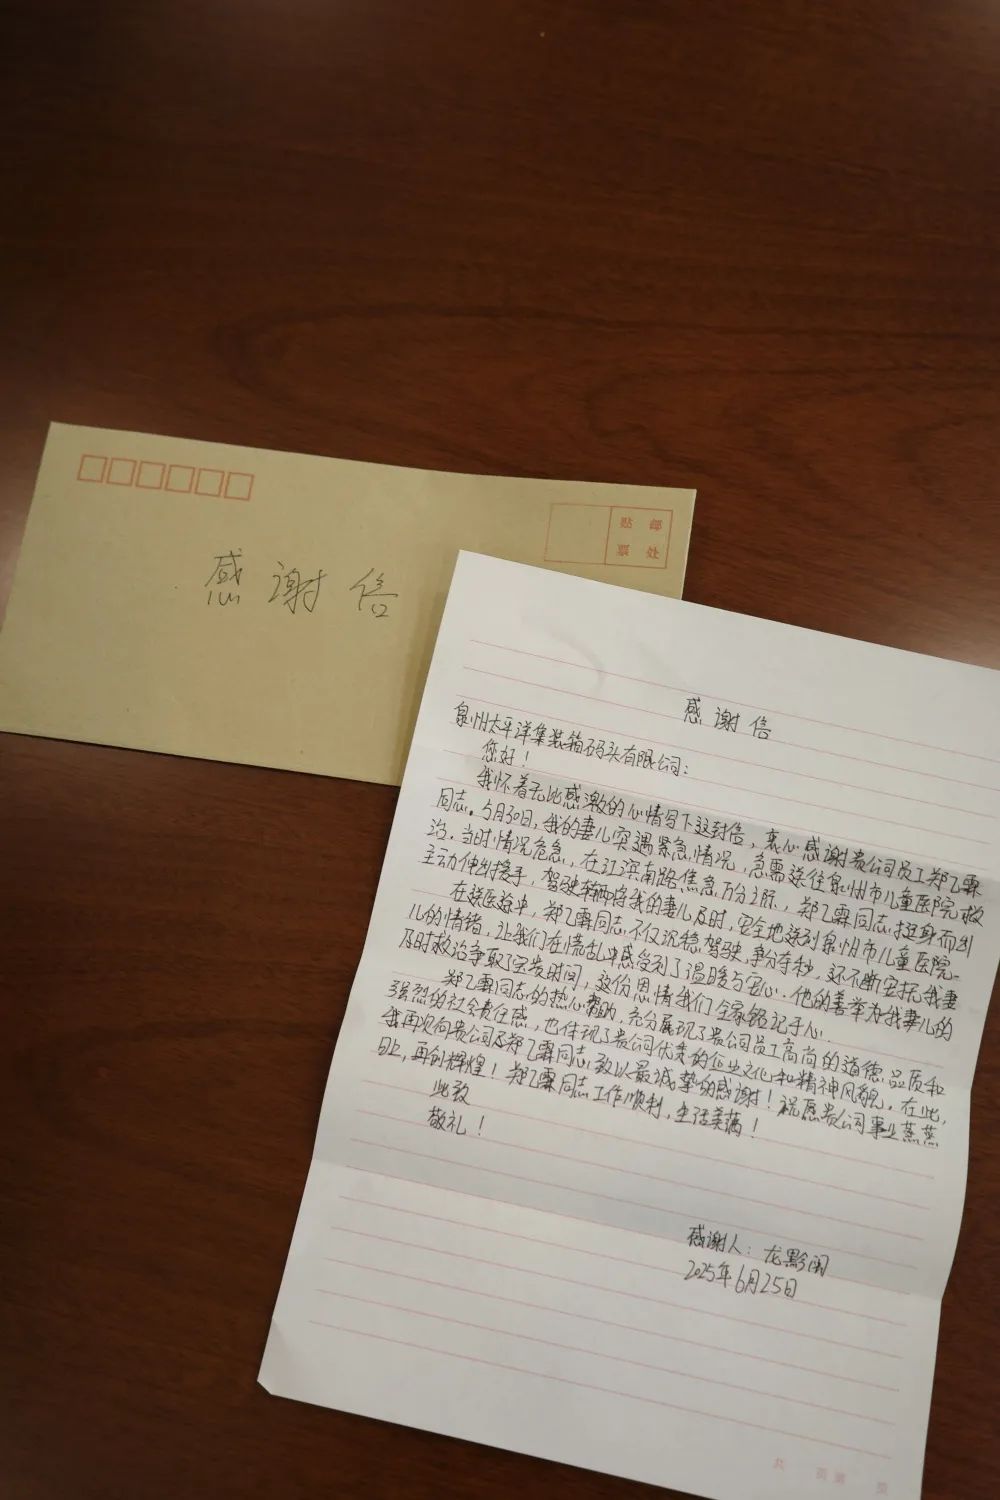 贴 邮
票 处
感谢信
感谢信
泉州太平洋集装箱码头有限公司：
您好！
我怀着无比感激的心情写下这封信，衷心感谢贵公司员工郑乙霖
同志。5月30日，我的妻儿突遇紧急情况，急需送往泉州市儿童医院救
治。当时情况危急，在江滨南路焦急万分之际，郑乙霖同志挺身而出
主动伸出援手，驾驶车辆将我的妻儿及时、安全地送到泉州市儿童医院。
在送医途中，郑乙霖同志不仅沉稳驾驶，争分夺秒，还不断安抚我妻
儿的情绪，让我们在慌乱中感受到了温暖与安心。他的善举为我妻儿的
及时救治争取了宝贵时间，这份恩情我们全家铭记于心。
郑乙霖同志的热心帮助，充分展现了贵公司员工高尚的道德品质和
强烈的社会责任感，也体现了贵公司优秀的企业文化和精神风貌。在此，
我再次向贵公司及郑乙霖同志致以最诚挚的感谢！祝愿贵公司事业蒸蒸
日上，再创辉煌！郑乙霖同志工作顺利，生活美满！
此致
敬礼！
感谢人：龙黔闽
2025年6月25日
共 页 第 页